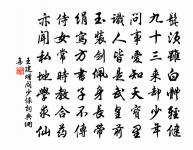 髭須雖白體輕堅
九十三來却少年
問事愛知天寶里
識人皆是武皇前
玉裝劍佩身長帶
絹寫方書子不傳
侍女常時教合藥
亦聞私地學求仙
王建 贈閻少保 詞典網